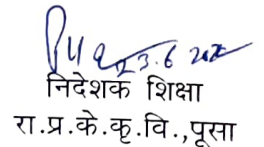 23.6
निदेशक शिक्षा
रा.प्र.के.कृ.वि.,पूसा